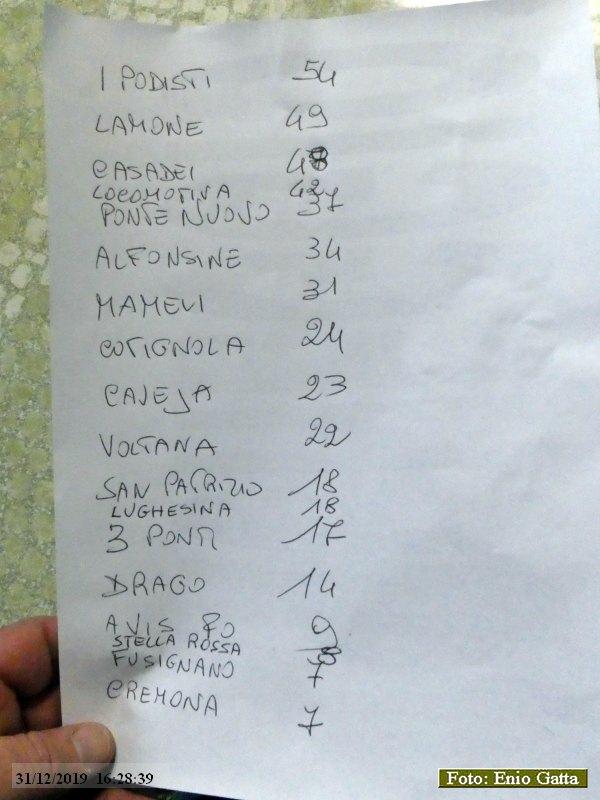 I PODISTI 54
LAMONE 49
CASADEI 48
LOCOMOTIVA 42
PONTE NUOVO 37
ALFONSINE 34
MAMELI 31
COTIGNOLA 24
CAVEJA 23
VOLTANA 22
SAN PATRIZIO 18
LUGHESINA 18
3 PONTI 17
DRAGO 14
AVIS FO 9
STELLA ROSSA 8
FUSIGNANO 7
CREMONA 7
31/12/2019 16:28:39
Foto: Enio Gatta